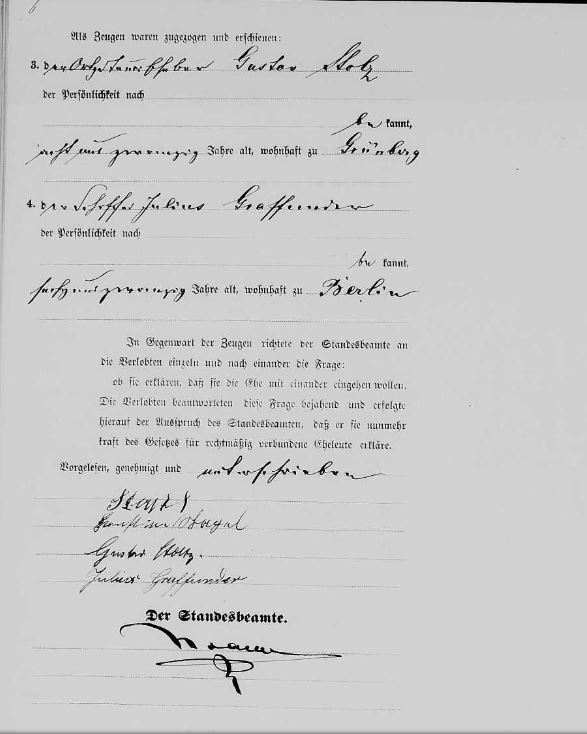 Als Zeugen waren zugezogen und erschienen:
3. der Gustav Stolz
der Persönlichkeit nach
be kannt,
acht und zwanzig Jahre alt, wohnhaft zu Grünberg
4. der Schiffer Julius Graffunder
der Persönlichkeit nach
be kannt,
sechs und zwanzig Jahre alt, wohnhaft zu Berlin
In Gegenwart der Zeugen richtete der Standesbeamte an
die Verlobten einzeln und nach einander die Frage:
ob sie erklären, daß sie die Ehe mit einander eingehen wollen.
Die Verlobten beantworteten diese Frage bejahend und erfolgte
hierauf der Ausspruch des Standesbeamten, daß er sie nunmehr
kraft des Gesetzes für rechtmäßig verbundene Eheleute erkläre.
Vorgelesen, genehmigt und unterschrieben
Gustav Stolz.
Julius Graffunder
Der Standesbeamte.